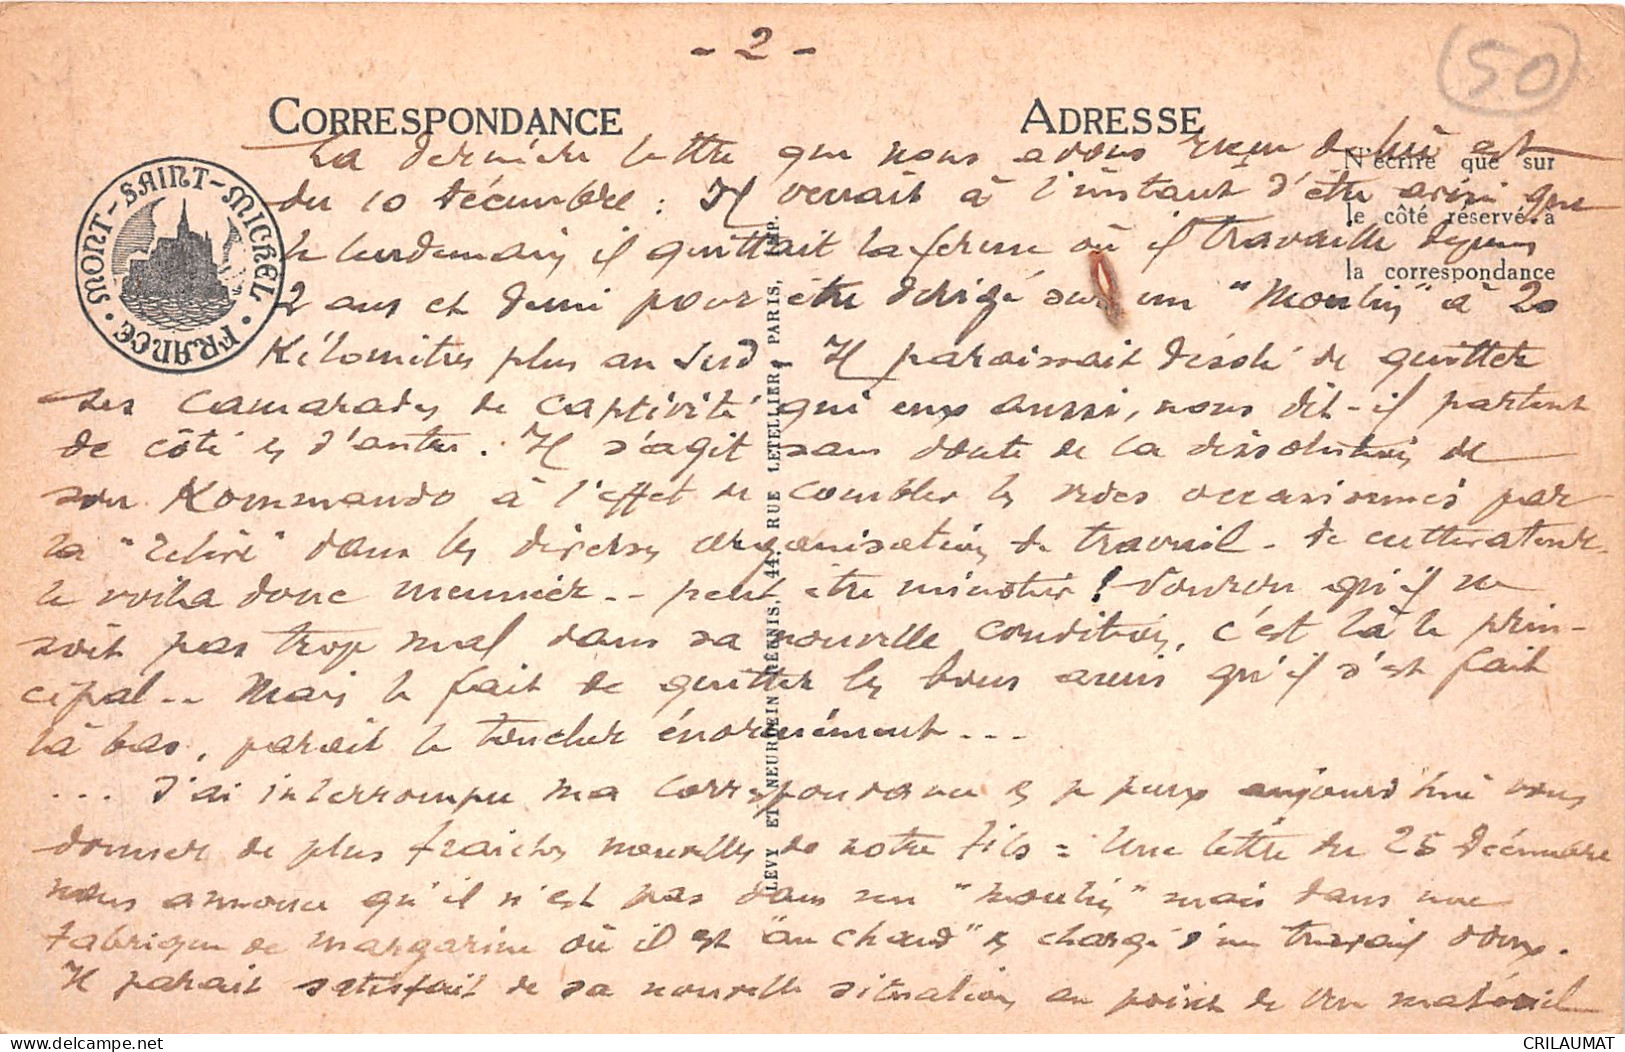 - 2 -
50
CORRESPONDANCE
ADRESSE
N'écrire que sur
le côté réservé à
la correspondance
MONT-SAINT-MICHEL · FRANCE ·
LEVY ET NEURDEIN RÉUNIS, 44, RUE LETELLIER, PARIS, IMP.
La dernière lettre que nous avons reçue de lui est
du 10 décembre : Il venait à l'instant d'être avisé que
le lendemain il quittait la ferme où il travaille depuis
2 ans et demi pour être dirigé sur un "Moulin" à 20
Kilomètres plus au Sud - Il paraissait désolé de quitter
ses camarades de captivité qui eux aussi, nous dit-il partent
de côté et d'autre. Il s'agit sans doute de la dissolution de
son Kommando à l'effet de combler les vides occasionnés par
la "relève" dans les diverses organisations de travail - De cultivateur
le voila donc meunier -- peut être minotier ! Pourvu qu'il ne
soit pas trop mal dans sa nouvelle condition, c'est là le prin-
cipal -- Mais le fait de quitter les bons amis qu'il s'est fait
là bas, parait le toucher énormément ---
... J'ai interrompu ma correspondance et je puis aujourd'hui vous
donner de plus fraiches nouvelles de notre fils = Une lettre du 25 Décembre
nous annonce qu'il n'est pas dans un "moulin" mais dans une
fabrique de margarine où il est "au chaud" et chargé d'un travail doux.
Il parait satisfait de sa nouvelle situation au point de vue matériel
CRILAUMAT